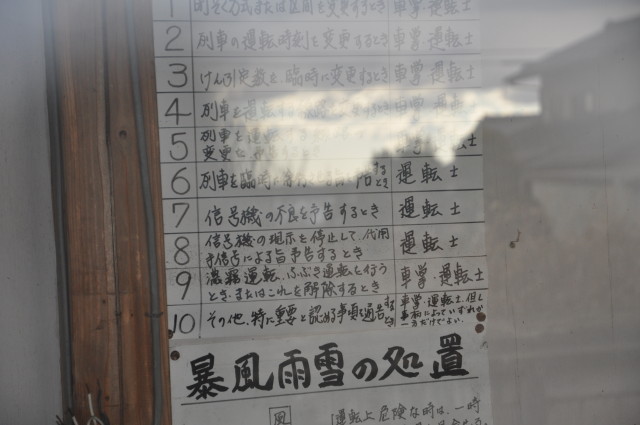 1 閉そく方式または区間を変更するとき 車掌・運転士
2 列車の運転時刻を変更するとき 車掌・運転士
3 けん引定数を、臨時に変更するとき 車掌・運転士
4 列車を運転 車掌・運転士
5 列車を運転
変更 とき 士
6 列車を臨時に とき 運転士
7 信号機の不良を予告するとき 運転士
8 信号機の現示を停止して、代用
手信号による旨予告するとき 運転士
9 濃霧運転、ふぶき運転を行う
とき・またはこれを解除するとき 車掌・運転士
10 その他、特に重要と認める事項を通告するとき 車掌・運転士、但し
事柄によっていずれか
一方だけでよい。
暴風雨雪の処置
風 運転上危険な時は、一時